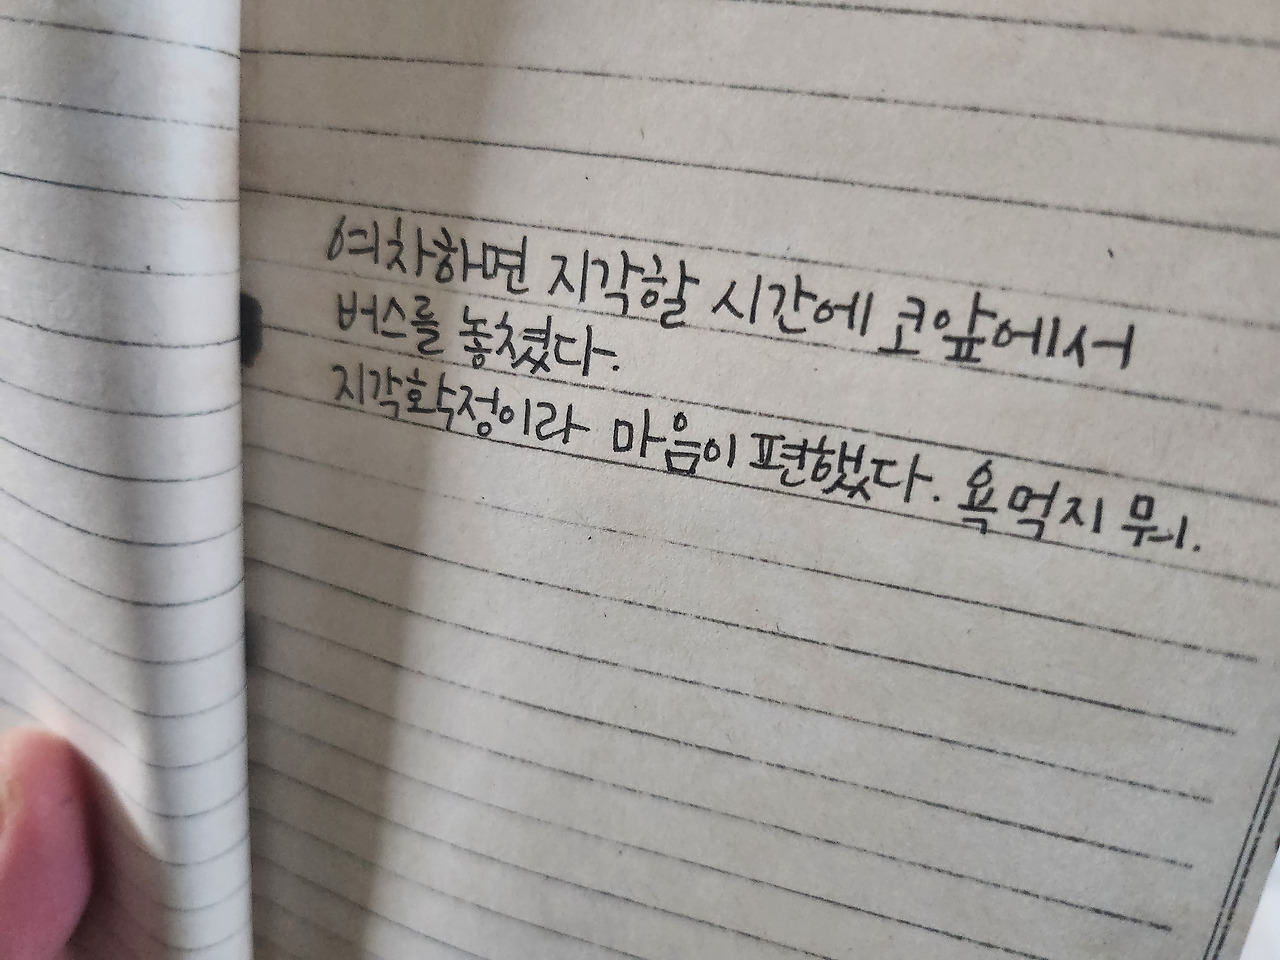 여차하면 지각할 시간에 코앞에서
버스를 놓쳤다.
지각확정이라 마음이 편했다. 욕먹지 뭐.